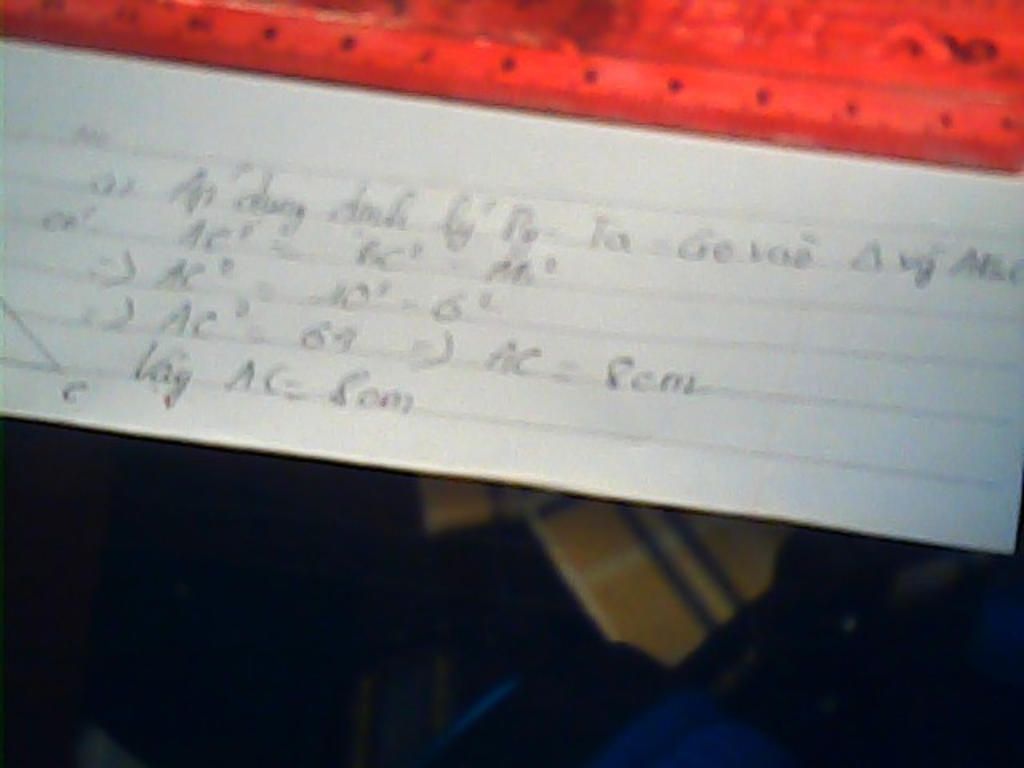 a) Áp dụng định lý Py-Ta-Go vào Δ vg ABC
có AC² = BC² - AB²
=> AC² = 10² - 6²
=> AC² = 64 => AC = 8cm
Vậy AC = 8cm
C